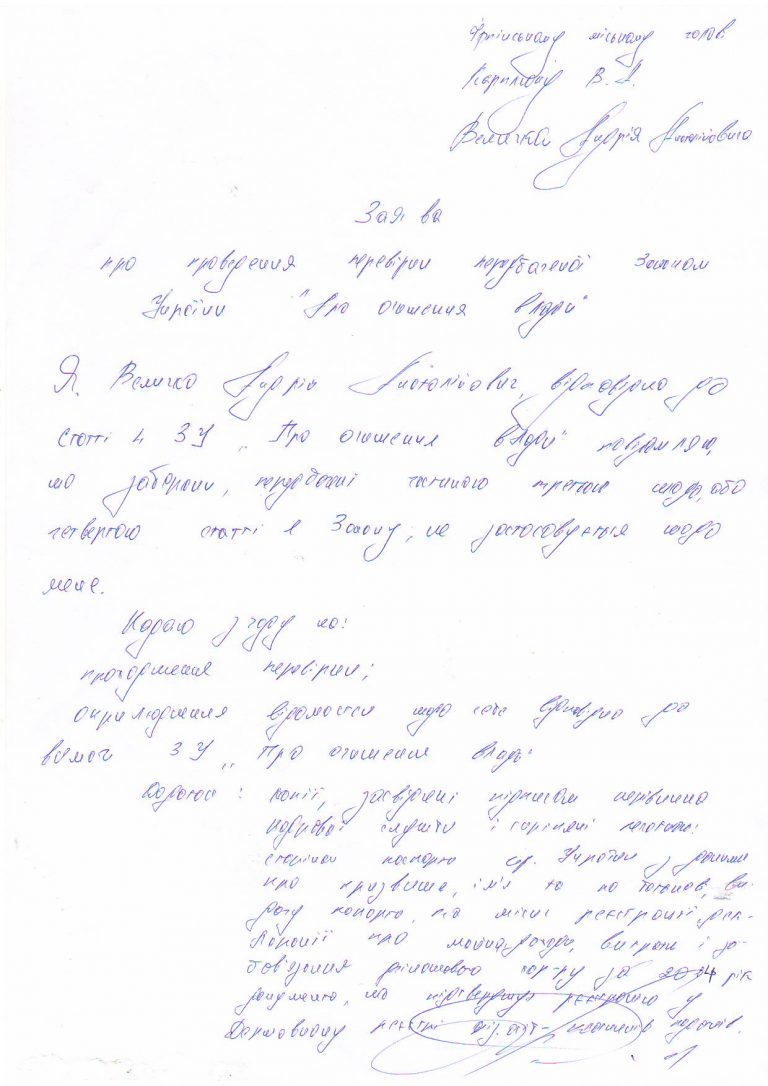 Ірпінському міському голові
Карплюку В. А.
Величка Андрія Анатолійовича
Заява
про проведення перевірки передбаченої Законом
України "Про очищення влади"
Я, Величко Андрій Анатолійович, відповідно до
статті 4 ЗУ „Про очищення влади" повідомляю,
що заборони, передбачені частиною третьою або
четвертою статті 1 Закону, не застосовуються щодо
мене.
Надаю згоду на:
проходження перевірки;
оприлюднення відомостей щодо себе відповідно до
вимог ЗУ „Про очищення влади"
Додатки: копії, засвідчені підписом керівника
кадрової служби і скріплені печаткою:
сторінок паспорта гр. України з даними
про прізвище, ім'я та по батькові, ви-
дачу паспорта, та місце реєстрації, дек-
ларації про майно, доходи, витрати і зо-
бов'язання фінансового хар-ру за 2014 рік
документа, що підтверджує реєстрацію у
Державному реєстрі фіз. осіб - платників податків.